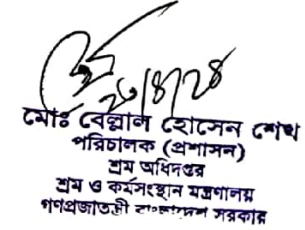 মোঃ বেল্লাল হোসেন শেখ
পরিচালক (প্রশাসন)
শ্রম অধিদপ্তর
শ্রম ও কর্মসংস্থান মন্ত্রণালয়
গণপ্রজাতন্ত্রী বাংলাদেশ সরকার